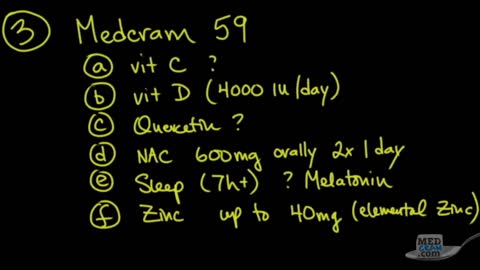 3 Medcram 59
a vit C ?
b vit D (4000 IU/day)
c Quercetin ?
d NAC 600mg orally 2x/day
e Sleep (7h+) ? Melatonin
f Zinc up to 40mg (elemental Zinc)
MED
CRAM